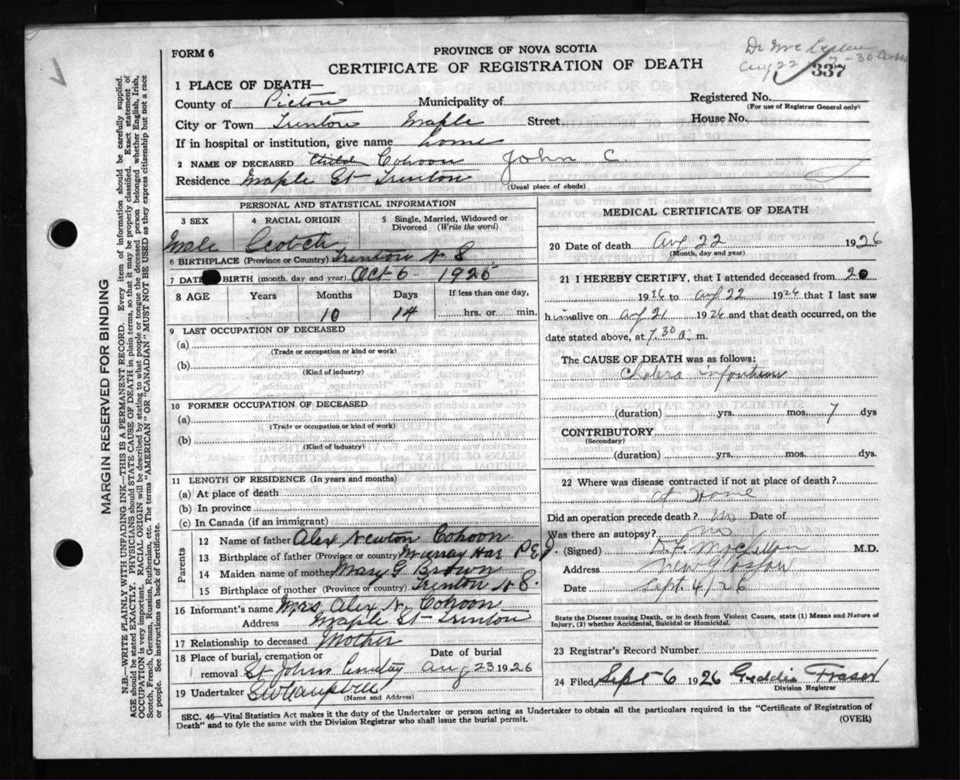 FORM 6
PROVINCE OF NOVA SCOTIA
CERTIFICATE OF REGISTRATION OF DEATH
Aug 22 7-30
337
1 PLACE OF DEATH—
County of Pictou Municipality of
Registered No.
(For use of Registrar General only)
City or Town Trenton Maple Street House No.
If in hospital or institution, give name home
2 NAME OF DECEASED Child Cohoon John C
Residence Maple St Trenton
(Usual place of abode)
PERSONAL AND STATISTICAL INFORMATION
3 SEX 4 RACIAL ORIGIN 5 Single, Married, Widowed or Divorced (Write the word)
Male Scotch
6 BIRTHPLACE (Province or Country) Trenton N S.
7 DATE BIRTH (month, day and year) Oct 6 1925
8 AGE Years Months Days If less than one day,
10 14 hrs. or min.
9 LAST OCCUPATION OF DECEASED
(a)
(Trade or occupation or kind or work)
(b)
(Kind of industry)
10 FORMER OCCUPATION OF DECEASED
(a)
(Trade or occupation or kind of work)
(b)
(Kind of industry)
11 LENGTH OF RESIDENCE (In years and months)
(a) At place of death
(b) In province
(c) In Canada (if an immigrant)
Parents
12 Name of father Alex Newton Cohoon
13 Birthplace of father (Province or country) Murray Har P E I
14 Maiden name of mother Mary G Brown
15 Birthplace of mother (Province or country) Trenton N S.
16 Informant's name Mrs Alex N. Cohoon
Address Maple St Trenton
17 Relationship to deceased Mother
18 Place of burial, cremation or removal Date of burial
St Johns Aug 23 1926
19 Undertaker S W Campbell
(Name and Address)
MEDICAL CERTIFICATE OF DEATH
20 Date of death Aug 22 1926
(Month, day and year)
21 I HEREBY CERTIFY, that I attended deceased from 20
1926 to Aug 22 1926 that I last saw
him alive on Aug 21 1926 and that death occurred, on
date stated above, at 7.30 a. m.
The CAUSE OF DEATH was as follows:
Cholera
(duration) yrs. mos. 7 dys
CONTRIBUTORY
(Secondary)
(duration) yrs. mos. dys.
22 Where was disease contracted if not at place of death?
at Home
Did an operation precede death? no Date of
Was there an autopsy? no
(Signed) M.D.
Address New Glasgow
Date Sept. 4/26
State the Disease causing Death, or in death from Violent Causes, state (1) Means and Nature of Injury, (2) whether Accidental, Suicidal or Homicidal.
23 Registrar's Record Number
24 Filed Sept 6 1926 Fraser
Division Registrar
SEC. 46—Vital Statistics Act makes it the duty of the Undertaker or person acting as Undertaker to obtain all the particulars required in the "Certificate of Registration of
Death" and to fyle the same with the Division Registrar who shall issue the burial permit.
(OVER)
MARGIN RESERVED FOR BINDING
N.B.—WRITE PLAINLY WITH UNFADING INK—THIS IS A PERMANENT RECORD. Every item of information should be carefully supplied.
AGE should be stated EXACTLY. PHYSICIANS should STATE CAUSE OF DEATH in plain terms, so that it may be properly classified. Exact statement of
OCCUPATION is very important. RACIAL ORIGIN will be described by stating to what people or tongue the deceased person belonged whether English, Irish,
Scotch, French, German, Russian, Ruthenian, etc. The terms "AMERICAN" or "CANADIAN" MUST NOT BE USED as they express citizenship but not a race
or people. See instructions on back of Certificate.